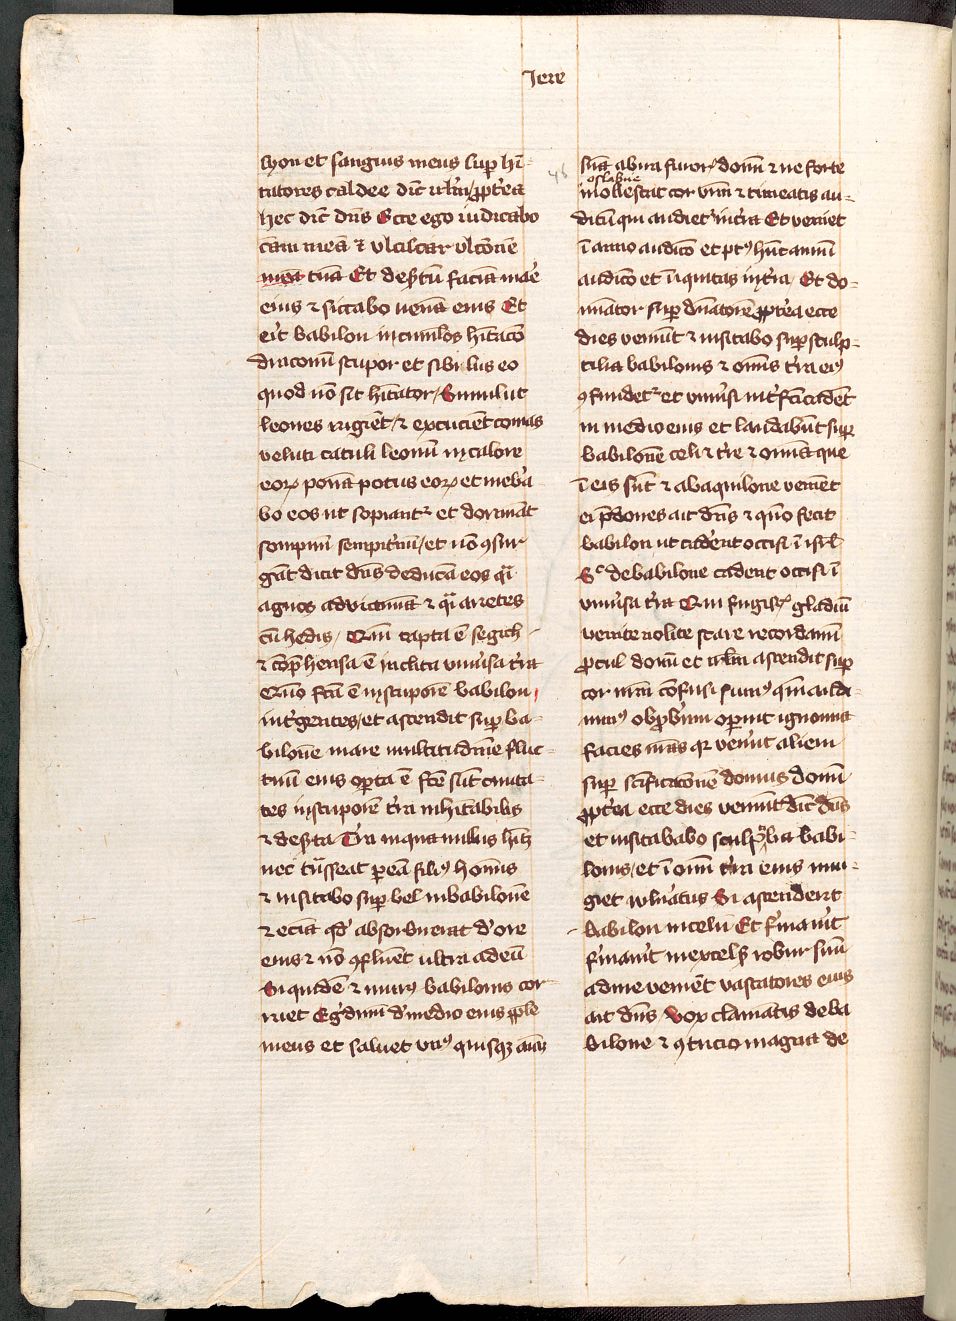 Jere
lyon et sanguis meus sup hi-
tatores caldee dic̄ irlm̄ ꝓpt̄ea
hec dic̄ dn̄s Ecce ego iudicabo
cām meā ⁊ vlciscar vlcōnē
meā tuā Et deſertū faciā mare
eius ⁊ siccabo venā eius Et
erit babilon in cumulos hītacō
draconū stupor et sibilus eo
quod nō sit hītator Simul ut
leones rugiēt ⁊ excuciēt comas
veluti catuli leonū in calore
eoꝝ ponā potus eoꝝ et inebria
bo eos ut sopiantur et dormiāt
sompnū sempit̄nū et nō ꝯsur
gāt dicit dn̄s deducā eos qͣi
agnos ad victimā ⁊ qͣi arietes
cū hedis Qm̄ capta ē segach
⁊ cōp̄hensa ē inclita uniūsa t̄ra
Quō fc̄a ē in stuporē babilon
int̄ gentes et ascendit sup ba-
bilonē mare multitudinē fluc-
tuū eius oꝑta ē fc̄e sūt ciuita-
tes in stuporē t̄ra inhitabilis
⁊ deserta Tr̄a in qua nullus hītet
nec trāsseat ꝑ eā filiꝰ hominis
⁊ visitabo sup bel in babilonē
⁊ eciā qd̄ absorbuerat d̄ ore
eius ⁊ nō ꝯfluēt ultra ad eū
Siquidē ⁊ murꝰ babilonis cor-
ruet Egredimī d̄ medio eius ppl̄e
meus et saluet unꝰ quisqꝫ aīam
suā ab ira furoris domī ⁊ ne forte
mollescat cor vrm̄ ⁊ timeatis au-
ditū qui audietur in t̄ra Et veniet
ī anno auditō et pt̄ꝰ hūc annū
auditō et iniquitas in t̄ra Et do-
minator sup dn̄atorē ꝓpt̄ea ecce
dies veniūt ⁊ visitabo sup sculp-
tilia babilonis ⁊ omīs t̄ra eiꝰ
ꝯfundetur et uniūsi int̄fc̄i cadēt
in medio eius et laudabūt sup
babilonē celi ⁊ t̄re ⁊ omīa que
ī eis sūt ⁊ ab aquilone veniēt
ei p̄dones ait dn̄s ⁊ quō fecit
babilon ut cad̄ent occisi ī isrl̄
Sꝫ de babilone cadent occisi ī
uniūsa t̄ra Qui fugistis gladiū
venite nolite stare recordamī
ꝓcul domī et irlm̄ ascendit sup
cor vrm̄ cōfusi sumꝰ qm̄ audi-
uimꝰ obprobriū oꝑuit ignomīa
facies nr̄as qꝛ venerūt alieni
sup sc̄ificacōnē domus domī
ꝓpt̄ea ecce dies veniūt dic̄ dn̄s
et visitababo sculptilia babi-
lonis et ī omī t̄ra eius mu-
giet wln̄atus Si ascendent
babilon in celū Et firmauīt
firmauīt in excelso robur suū
a d me veniēt vastatores eius
ait dn̄s Vox clamātis de ba
bilone ⁊ ꝯtricio magna de